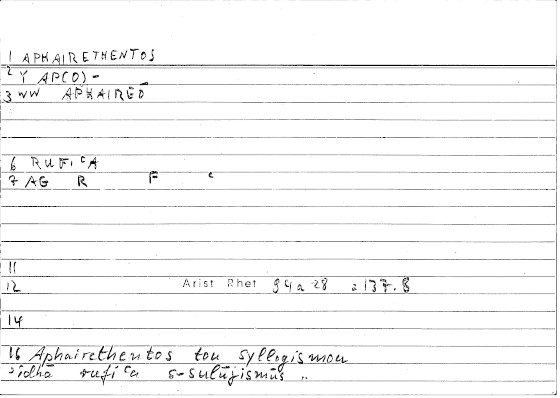 1 APHAIRETHENTOS
2 Y AP(O)-
3 WW APHAIREŌ
6 RUFIʿA
7 AG R F ʿ
11
12 Arist Rhet 94a28 :137.8
14
16 Aphairethentos tou syllogismou
ʾidhā rufiʿa s-sulūjismūs ..